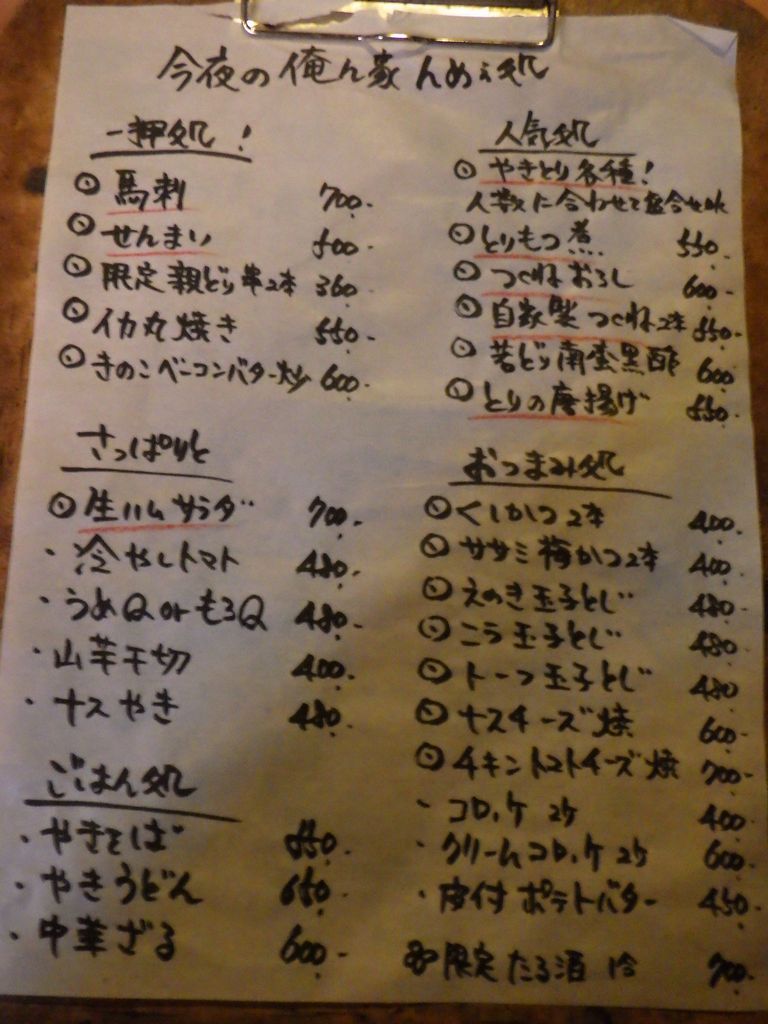 今夜の俺ん家んめぇ処
一押処!
◎馬刺 700.-
◎せんまい 500-
◎限定親どり串2本 360.-
◎イカ丸焼き 550.-
◎きのこベーコンバター炒 600.-
さっぱりと
◎生ハムサラダ 700.-
・冷やしトマト 480.-
・うめQorもろQ 480.-
・山芋千切 400.-
・ナスやき 480.
ごはん処
・やきそば 550.-
・やきうどん 650.-
・中華ざる 600.-
人気処
◎やきとり各種!
人数に合わせて盛合せok
◎とりもつ煮 550.-
◎つくねおろし 600.-
◎自家製つくね2本 550.-
◎若どり南蛮黒酢 600-
◎とりの唐揚げ 550.-
おつまみ処
◎くしかつ2本 400.-
◎ササミ梅かつ2本 400.-
◎えのき玉子とじ 480.-
◎ニラ玉子とじ 480.-
◎トーフ玉子とじ 480.-
◎ナスチーズ焼 600.-
◎チキントマトチーズ焼 700.-
・コロッケ2ケ 400.-
・クリームコロッケ2ケ 600.-
・皮付ポテトバター 450.-
限定たる酒 冷 700.-